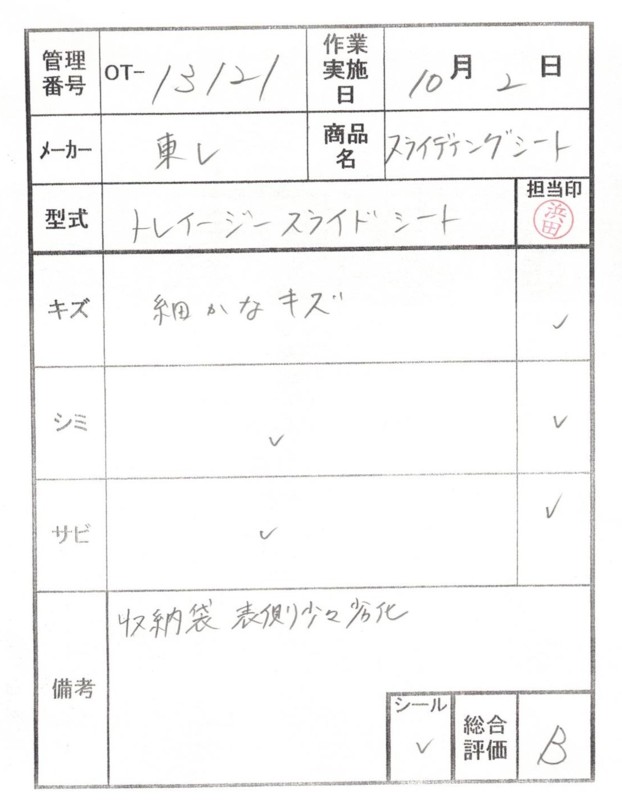 管理番号 OT-13121 作業実施日 10月2日
メーカー 東レ 商品名 スライディングシート
担当印
型式 トレイージースライドシート 浜田
キズ 細かなキズ ✓
シミ ✓ ✓
サビ ✓ ✓
備考 収納袋 表側少々劣化
シール ✓ 総合評価 B